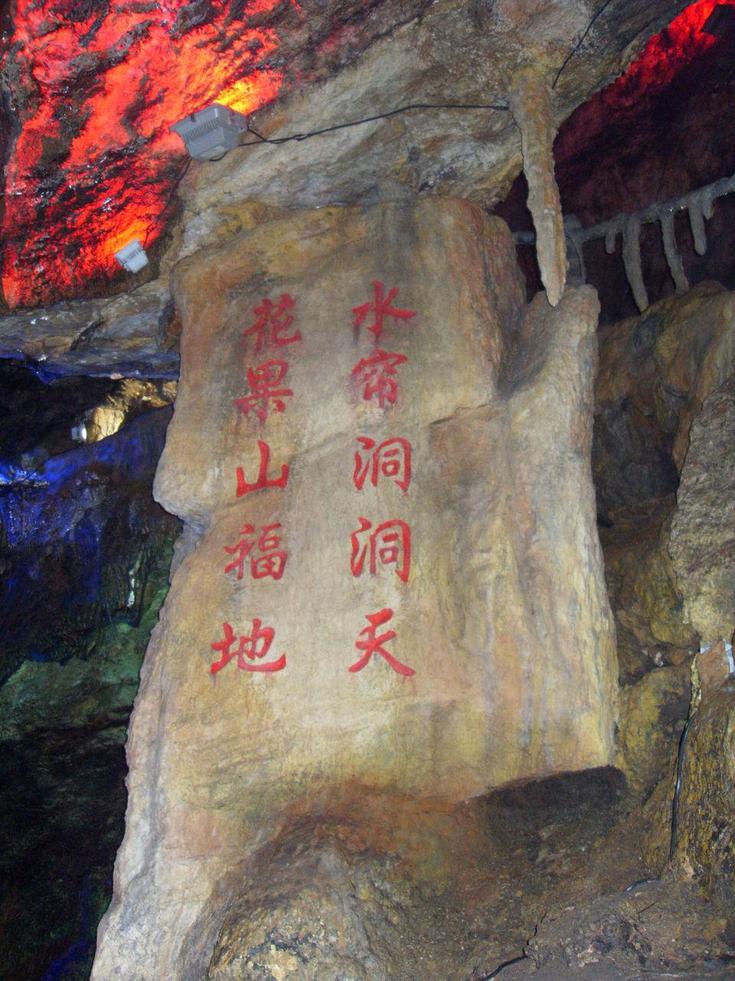 水帘洞洞天
花果山福地